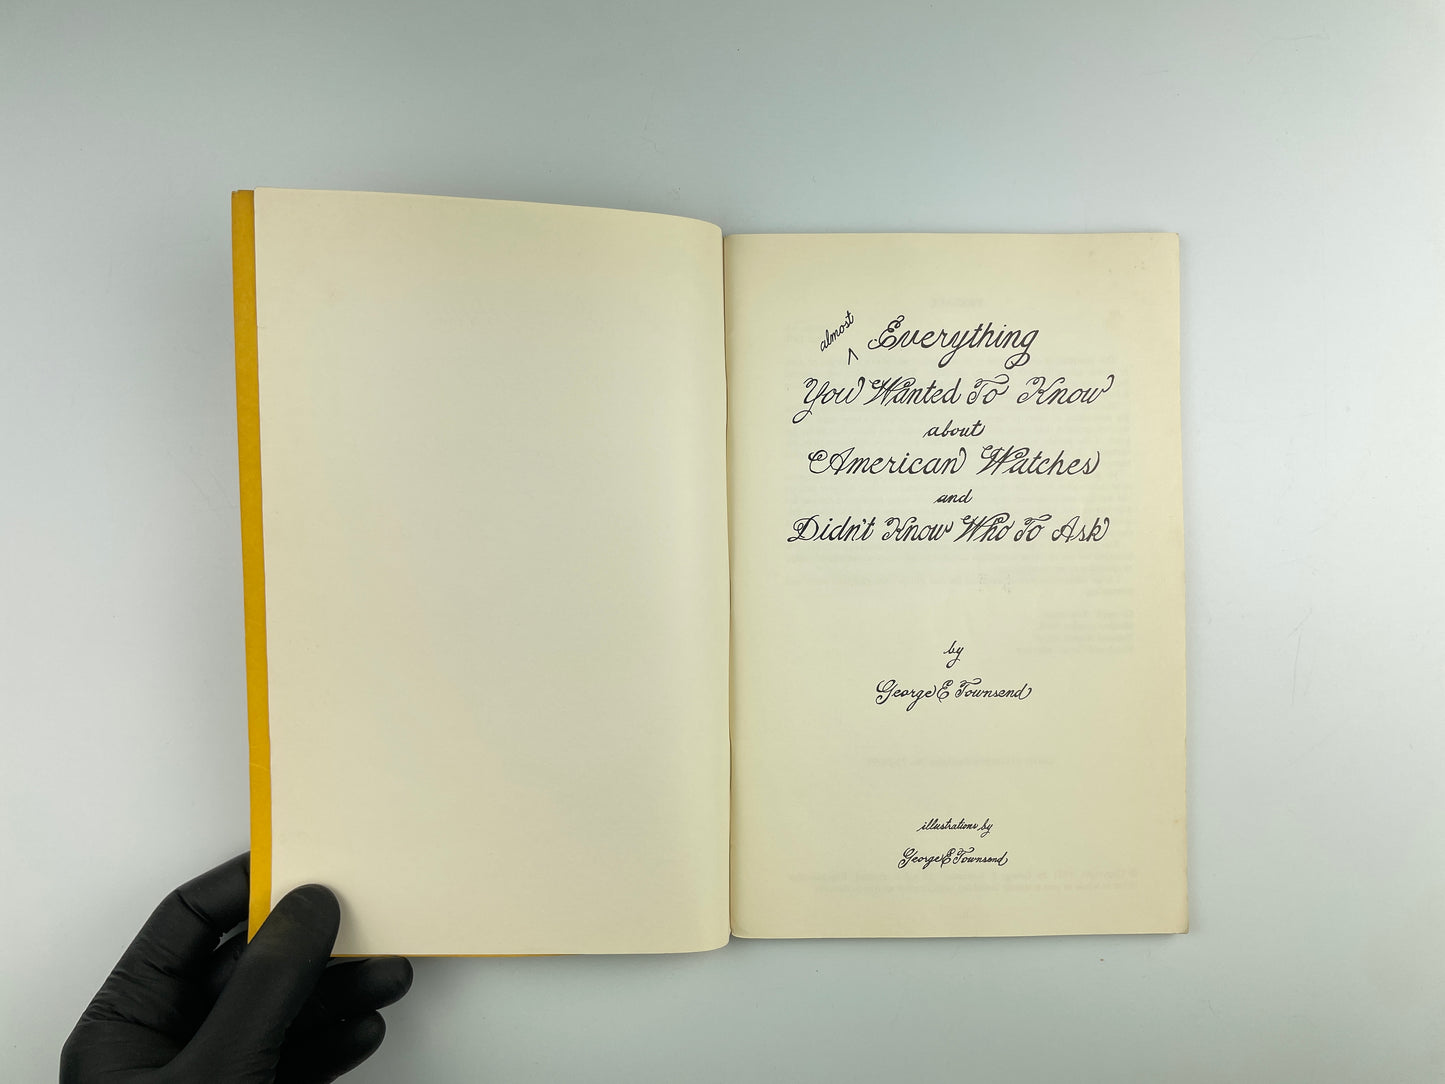 almost
^ Everything
You Wanted To Know
about
American Watches
and
Didn't Know Who To Ask
by
George E Townsend
illustrations by
George E Townsend